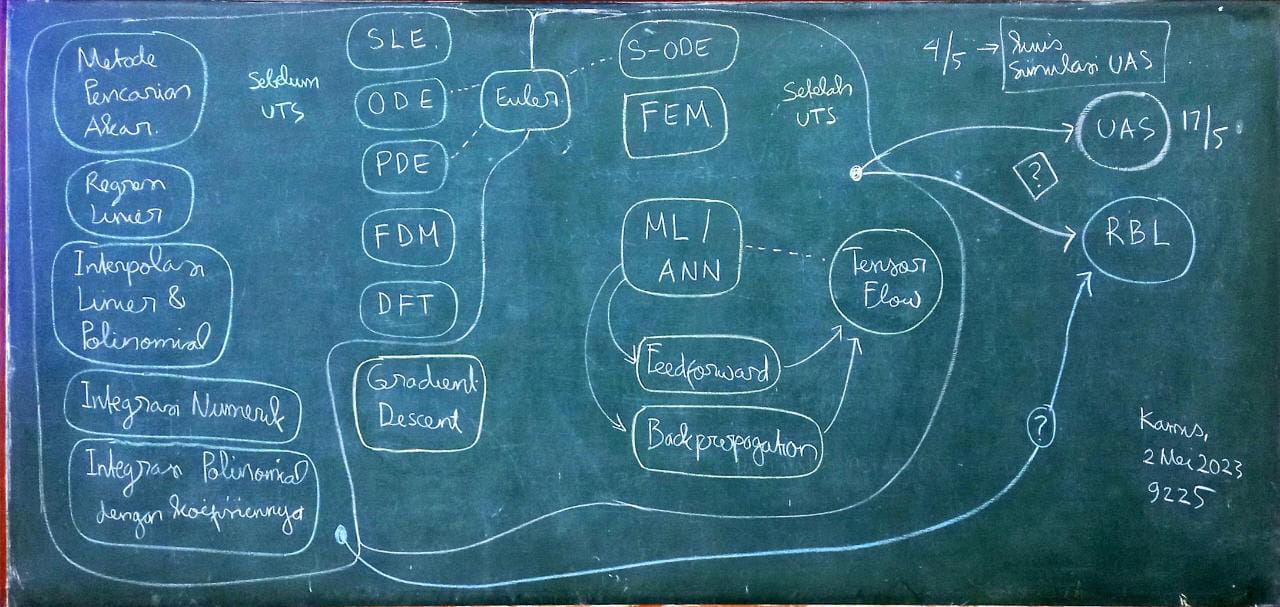 Metode
Pencarian
Akar.
Regresi
Linier
Interpolasi
Linier &
Polinomial
Integrasi Numerik
Integrasi Polinomial
dengan koefisiennya
Sebelum
UTS
SLE.
ODE
PDE
FDM
DFT
Gradient
Descent
Euler.
S-ODE
FEM
ML /
ANN
Feedforward
Backpropagation
Tensor
Flow
Setelah
UTS
4/5 →
Simulasi UAS
UAS 17/5
?
RBL
?
Kamis,
2 Mei 2023
9225